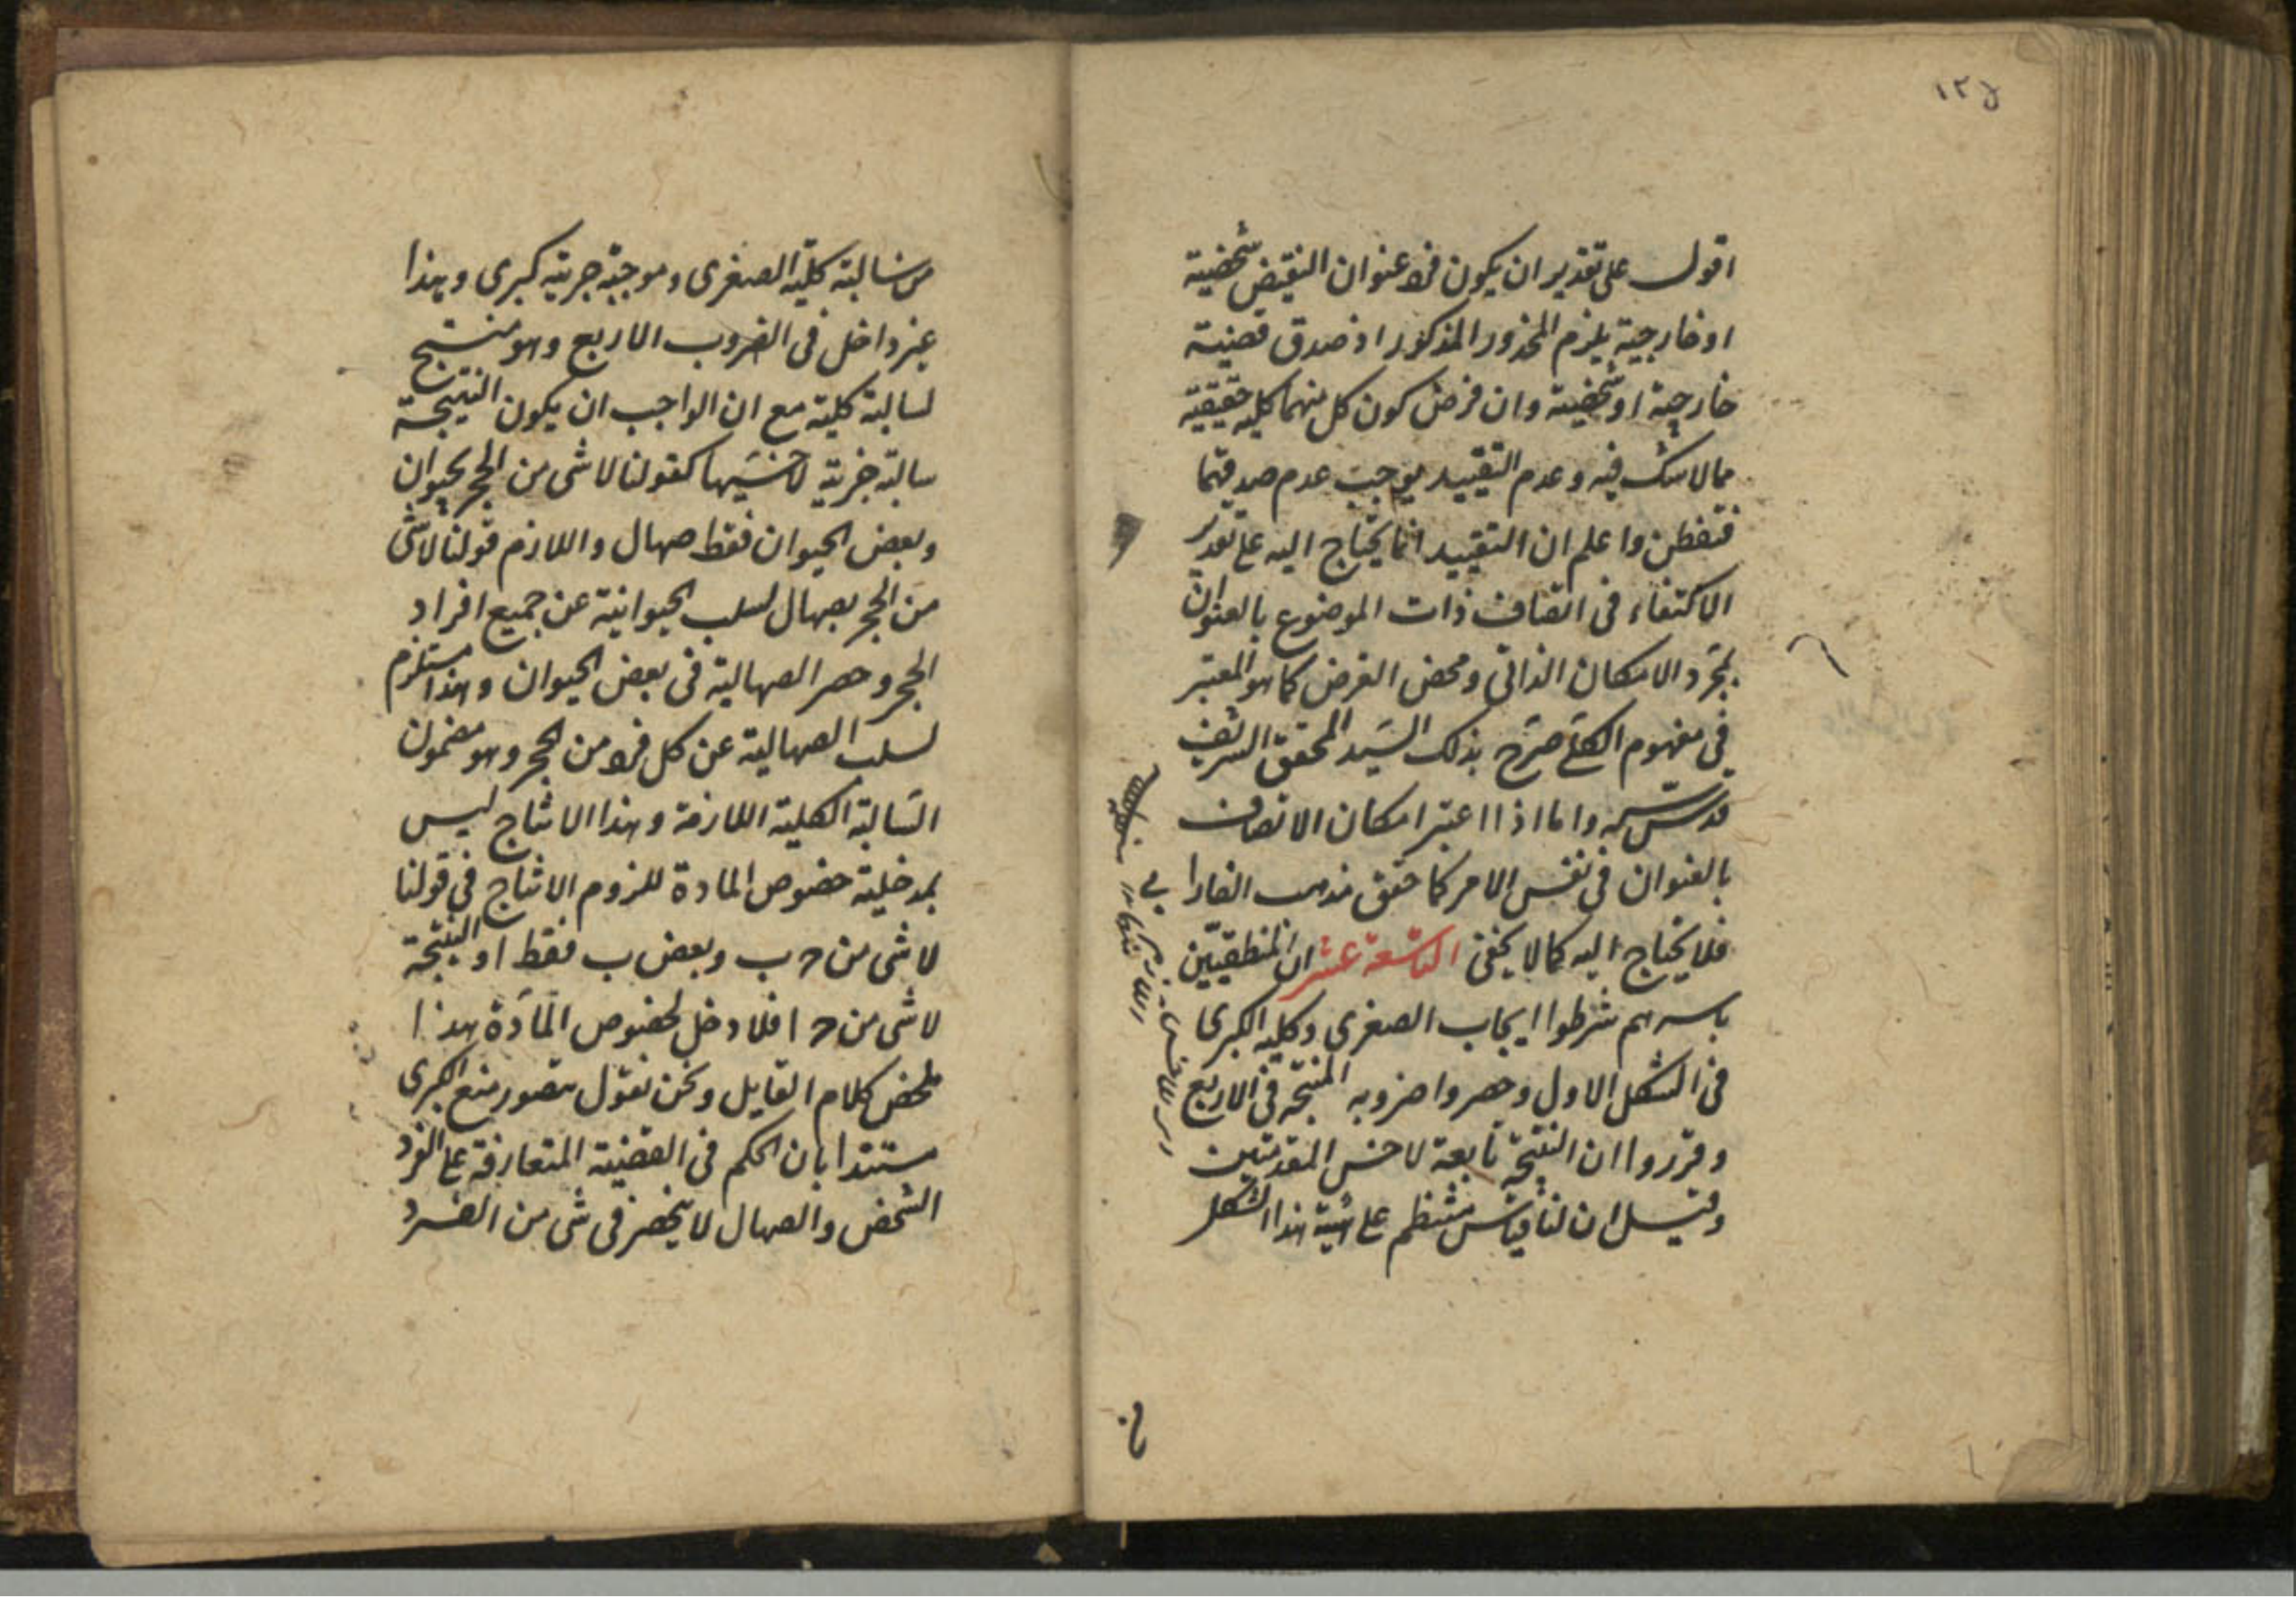 ١٢٤
اقول على تقدير ان يكون فرد عنوان النقيض شخصية
او خارجية يلزم المحذور المذكور اذ صدق قضية
خارجية او شخصية وان فرض كون كل منهما كلية حقيقية
مما لا شك فيه وعدم التقييد يوجب عدم صدقهما
فتفطن واعلم ان التقييد انما يحتاج اليه على تقدير
الاكتفاء فى اتصاف ذات الموضوع بالعنوان
بمجرّد الامكان الذاتى ومحض الفرض كما هو المعتبر
فى مفهوم الكلى صرّح بذلك السّيد المحقق الشريف
قدس سره واما اذا اعتبر امكان الاتصاف
بالعنوان فى نفس الامر كما حقق مذهب الفارابى
فلا يحتاج اليه كما لا يخفى التاسعة عشر ان المنطقيّين
باسرهم شرطوا ايجاب الصغرى وكلية الكبرى
فى الشكل الاول وحصروا ضروبه المنتجة فى الاربع
وقرروا ان النتيجة تابعة لاخس المقدمتين
وقيل ان لنا قياس منتظم على هيئة هذا الشكل
من سالبة كلية الصغرى وموجبة جزية كبرى وهذا
غير داخل فى الضروب الاربع وهو منتج
لسالبة كلية مع ان الواجب ان يكون النتيجة
سالبة جزية لاخسّيها كقولنا لا شى من الحجر بحيوان
وبعض الحيوان فقط صهال واللازم قولنا لا شى
من الحجر بصهال لسلب الحيوانية عن جميع افراد
الحجر وحصر الصهالية فى بعض الحيوان وهذا مستلزم
لسلب الصهالية عن كل فرد من الحجر وهو مضمون
السّالبة الكلية اللازمة وهذا الانتاج ليس
بمدخلية خصوص المادة للزوم الانتاج فى قولنا
لا شى من ج ب وبعض ب فقط ا والنتيجة
لا شى من ج ا فلا دخل لخصوص المادّة هذا
ملخص كلام القايل ونحن نقول يتصور منع الكبرى
مستندا بان الحكم فى القضية المتعارفة على الفرد
الشخص والصهال لا ينحصر فى شى من الفرد